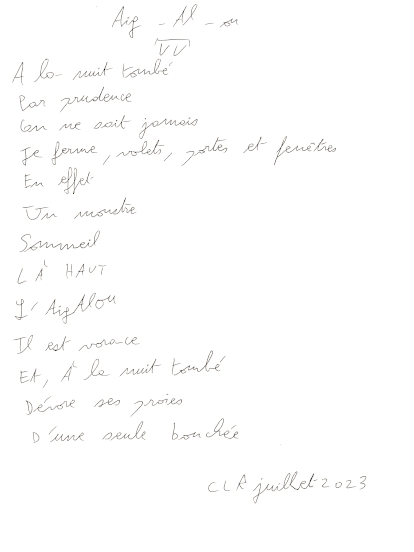 Aig - Al - ou
VV
A la nuit tombé
Par prudence
On ne sait jamais
Je ferme, volets, portes et fenêtres
En effet
Un monstre
Sommeil
LÀ HAUT
L'AigAlou
Il est vorace
Et, À la nuit tombé
Dévore ses proies
D'une seule bouchée
CLA juillet 2023